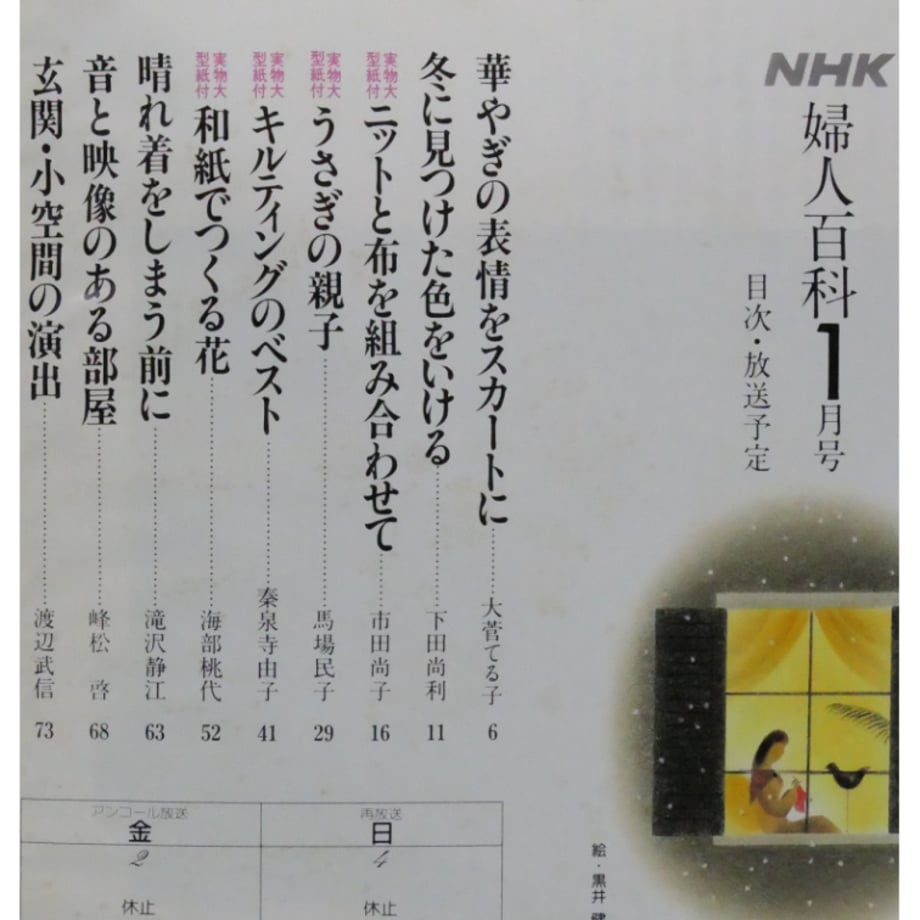 NHK
婦人百科1月号
目次・放送予定
華やぎの表情をスカートに 大菅てる子 6
冬に見つけた色をいける 下田尚利 11
実物大型紙付 ニットと布を組み合わせて 市田尚子 16
実物大型紙付 うさぎの親子 馬場民子 29
実物大型紙付 キルティングのベスト 秦泉寺由子 41
実物大型紙付 和紙でつくる花 海部桃代 52
晴れ着をしまう前に 滝沢静江 63
音と映像のある部屋 峰松 啓 68
玄関・小空間の演出 渡辺武信 73
絵・黒井 健
再放送
日
4
休止
アンコール放送
金
2
休止